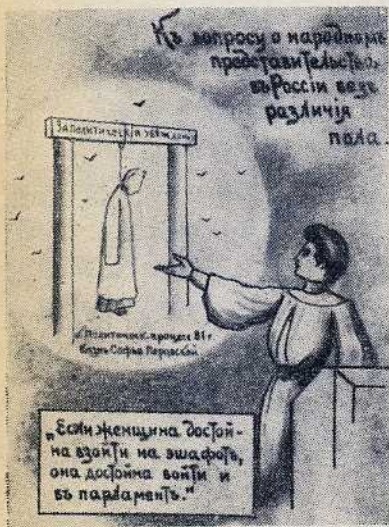 Къ вопросу о народномъ
представительствѣ
въ Россіи безъ
различія
пола.
За политическія убѣжденія
Политическ. процессъ 81 г.
Казнь Софьи Перовской
„Если женщина достой-
на взойти на эшафотъ,
она достойна войти и
въ парламентъ."